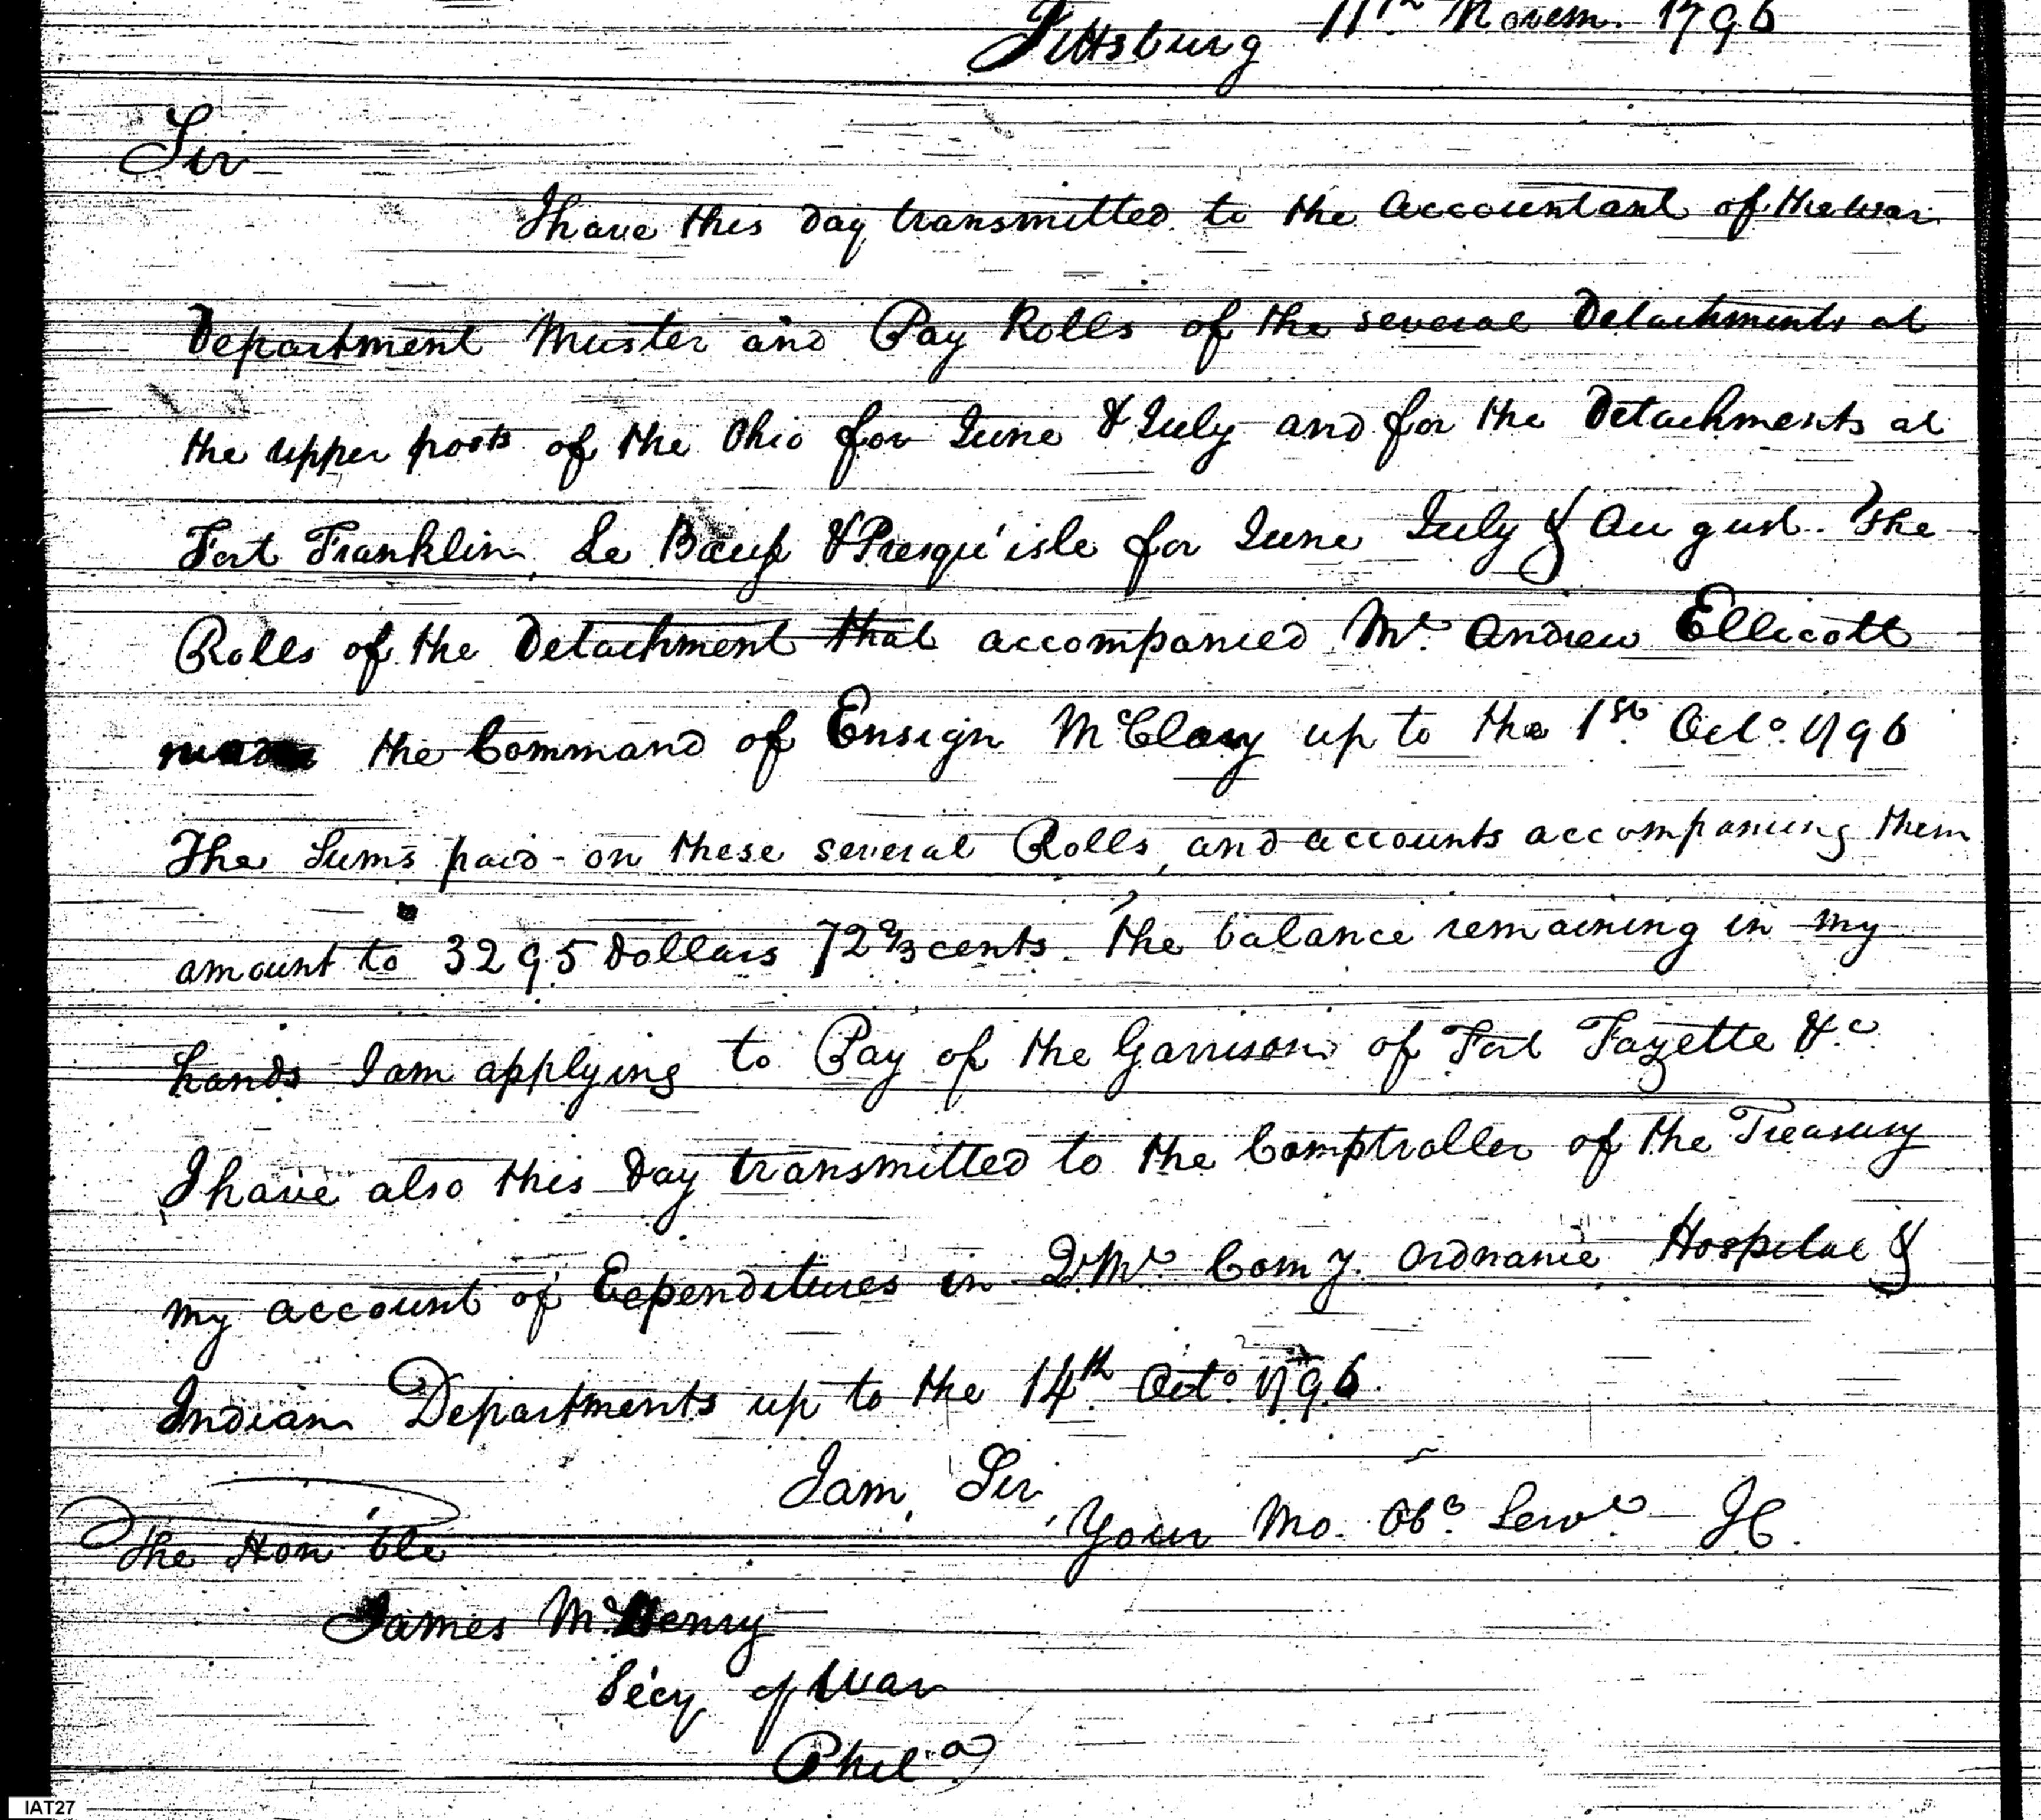 Pittsburg 11th Novem. 1796
Sir
I have this day transmitted to the Accountant of the War
Department Muster and Pay Rolls of the several Detachments at
the upper posts of the Ohio for June & July and for the Detachments at
Fort Franklin, Le Bœuf & Presqu'isle for June July & August. The
Rolls of the Detachment that accompanied Mr. Andrew Ellicott
the Command of Ensign McClary up to the 1st. Octo. 1796
The Sums paid on these several Rolls, and accounts accompaniing them
amount to 3295 Dollars 72 2/3 cents. The balance remaining in my
hands I am applying to Pay of the Garrison of Fort Fayette &c
I have also this Day transmitted to the Comptroller of the Treasury
my account of Expenditures in Q.Mr. Com y. Ordnance Hospital &
Indian Departments up to the 14th. Octo. 1796.
I am, Sir
Your Mo. Obt. Servt JC.
The Hon'ble
James McHenry
Secy of War
Phila
IAT27